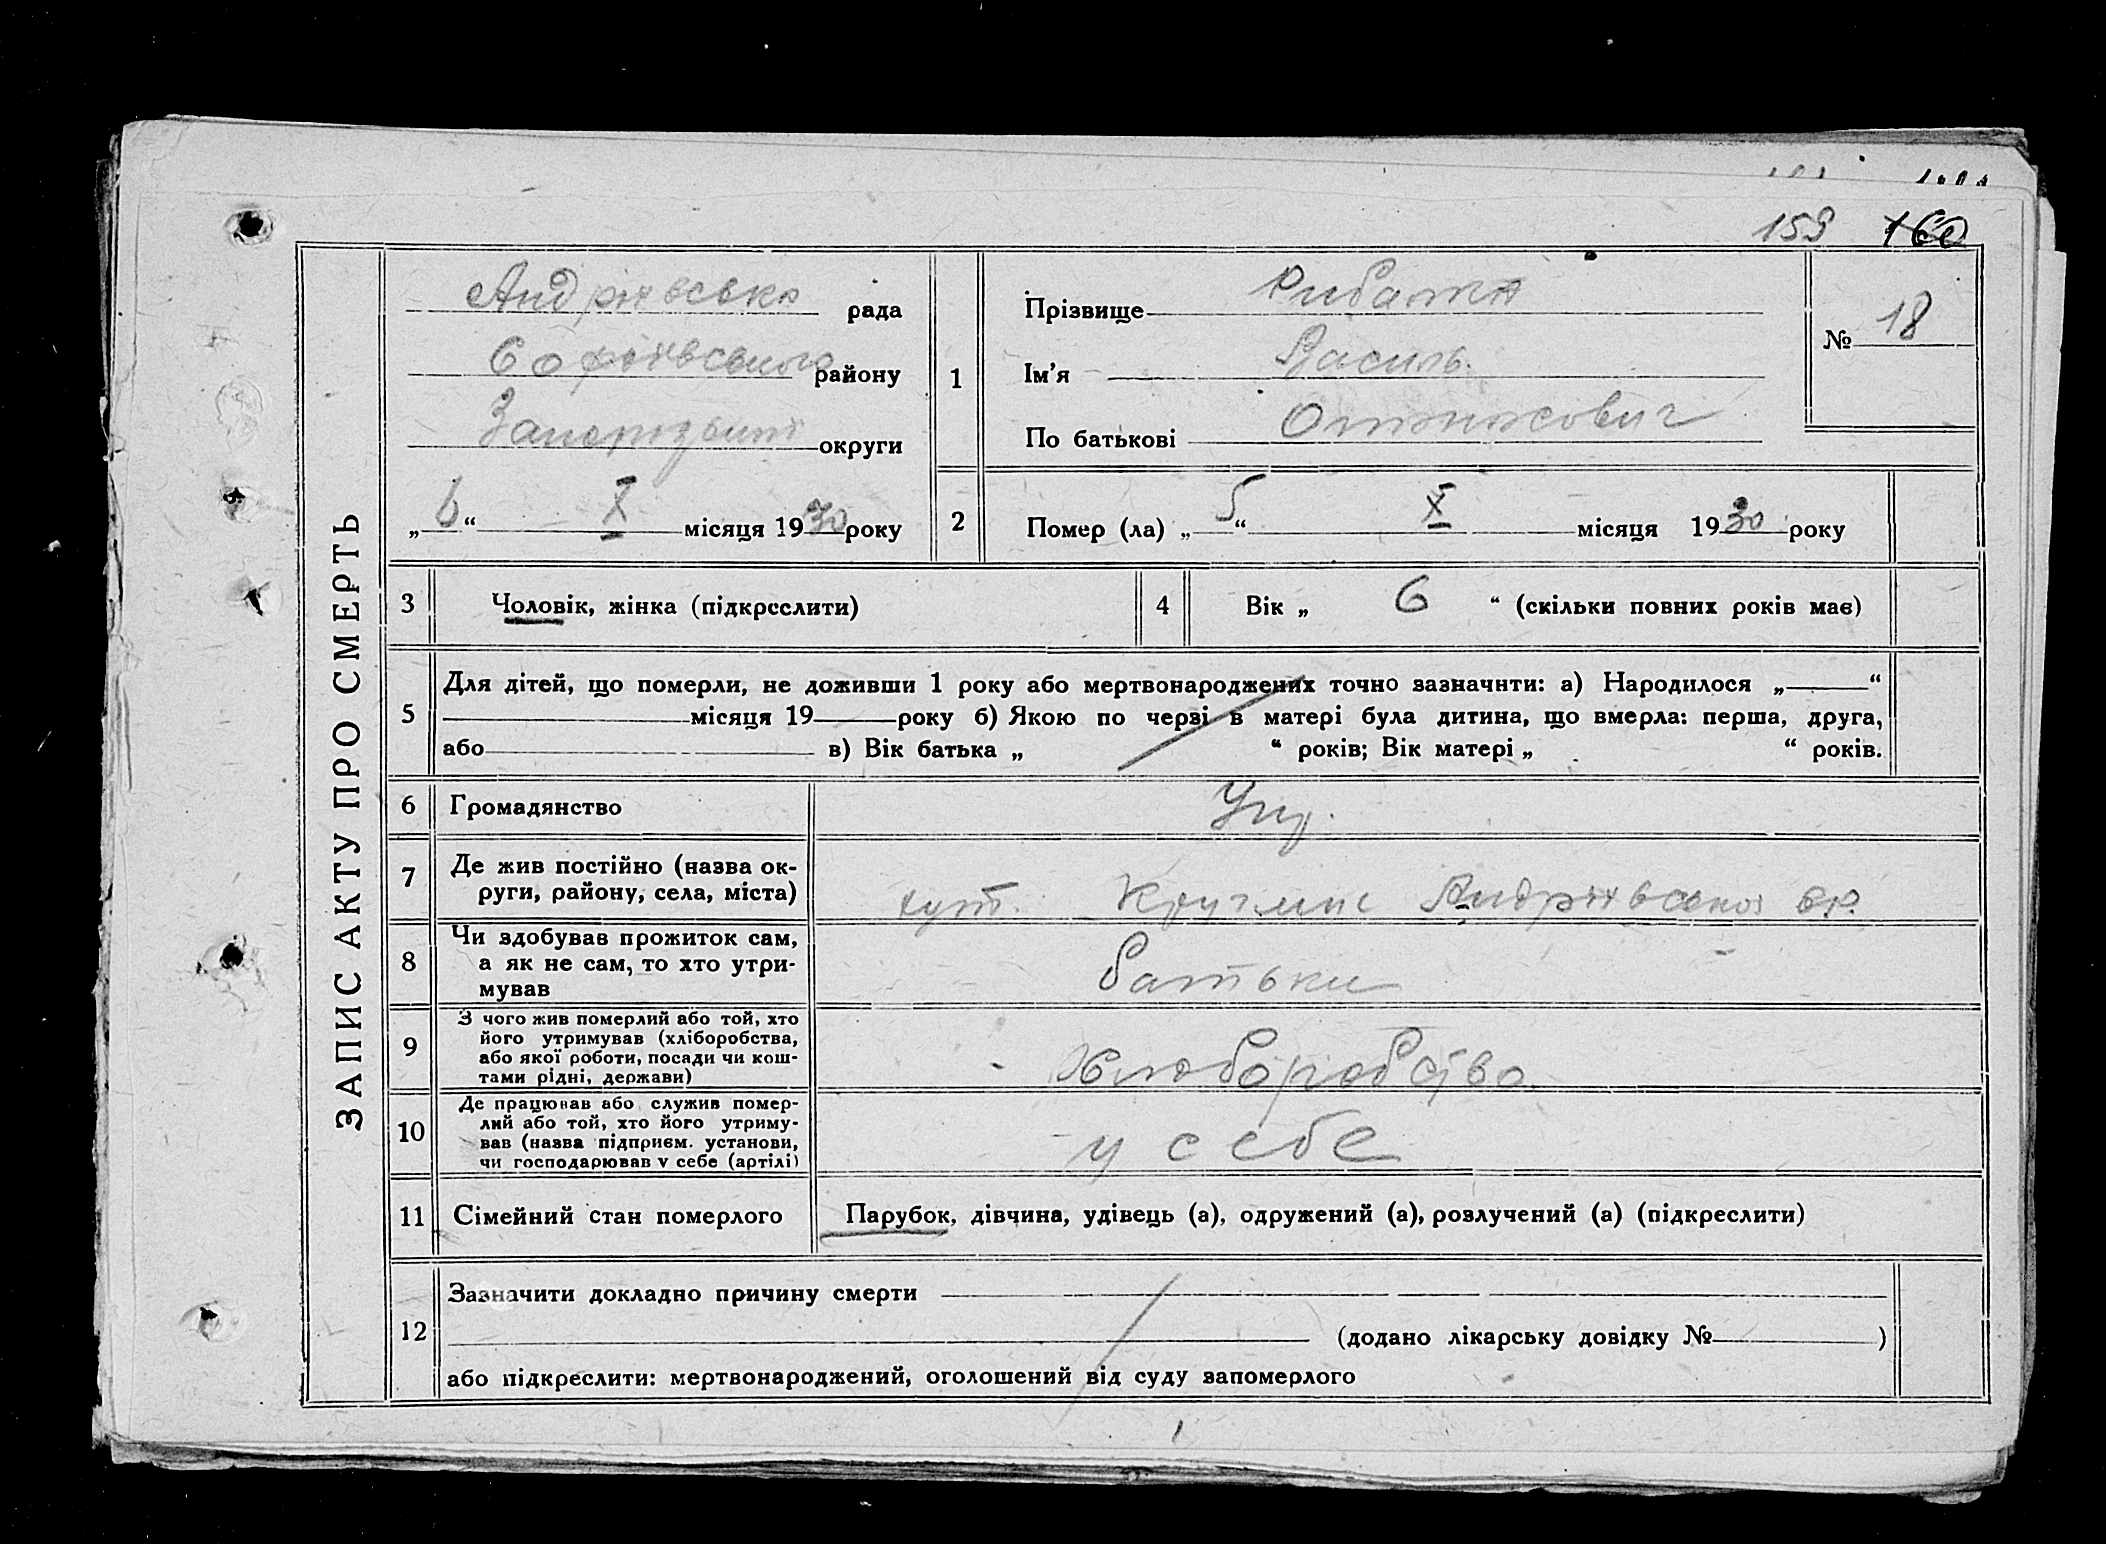 159 160
ЗАПИС АКТУ ПРО СМЕРТЬ
Андріївська рада
Софіївського району
Запорізької округи
„6“ X місяця 1930 року
1
Прізвище Рибалка
Ім’я Василь
По батькові
№ 18
2
Помер (ла) „5“ X місяця 1930 року
3 Чоловік, жінка (підкреслити)
4 Вік „ 6 “ (скільки повних років має)
5
Для дітей, що померли, не доживши 1 року або мертвонароджених точно зазначити: а) Народилося „ “
місяця 19 року б) Якою по черзі в матері була дитина, що вмерла: перша, друга,
або в) Вік батька „ “ років; Вік матері „ “ років.
6 Громадянство Укр.
7 Де жив постійно (назва ок-
руги, району, села, міста)
хут. Андріївської с.р.
8 Чи здобував прожиток сам,
а як не сам, то хто утри-
мував
батьки
9 З чого жив померлий або той, хто
його утримував (хліборобства,
або якої роботи, посади чи кош-
тами рідні, держави)
Хлібороб­ство
10 Де працював або служив помер-
лий або той, хто його утриму-
вав (назва підприєм. установи,
чи господарював у себе (артілі)
у себе
11 Сімейний стан померлого Парубок, дівчина, удівець (а), одружений (а), розлучений (а) (підкреслити)
12
Зазначити докладно причину смерти
(додано лікарську довідку № )
або підкреслити: мертвонароджений, оголошений від суду запомерлого